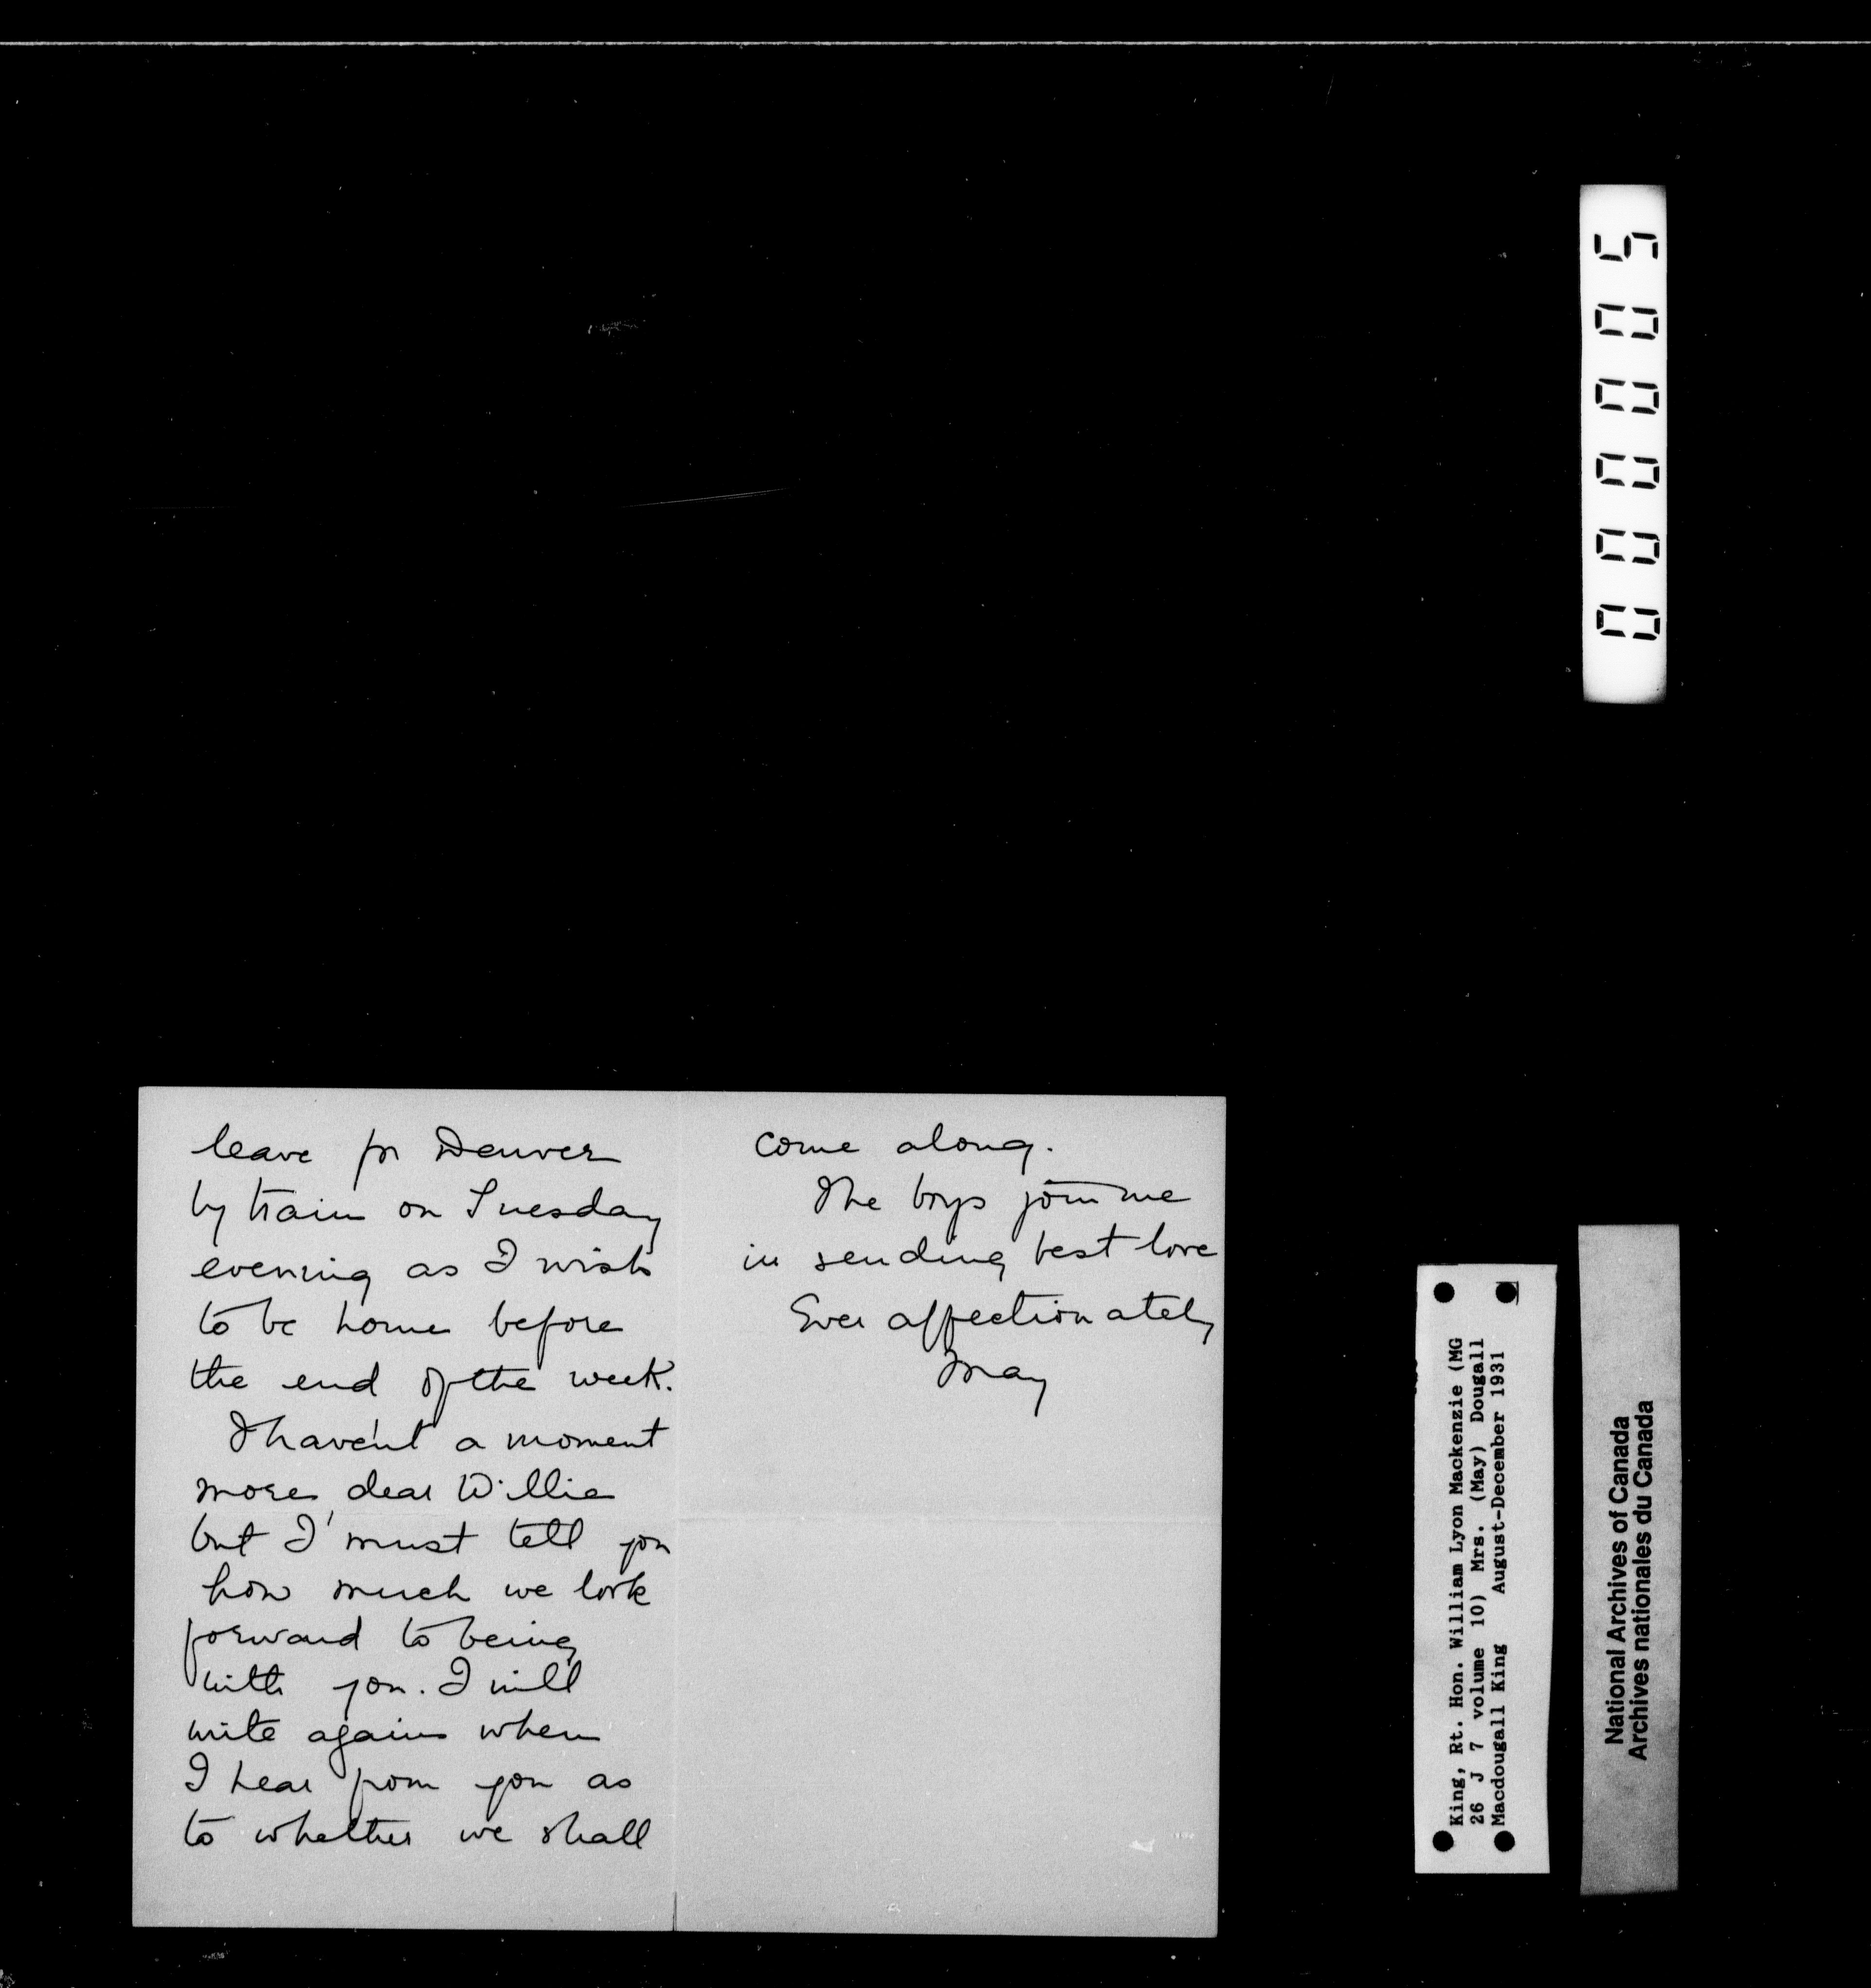 leave for Denver
by train on Tuesday
evening as I wish
to be home before
the end of the week.
I haven't a moment
more, dear Willie
but I must tell you
how much we look
forward to being
with you. I will
write again when
I hear from you as
to whether we shall
come along.
The boys join me
in sending best love
Ever affectionately
May
000005
King, Rt. Hon. William Lyon Mackenzie (MG
26 J 7 volume 10) Mrs. (May) Dougall
Macdougall King August-December 1931
National Archives of Canada
Archives nationales du Canada